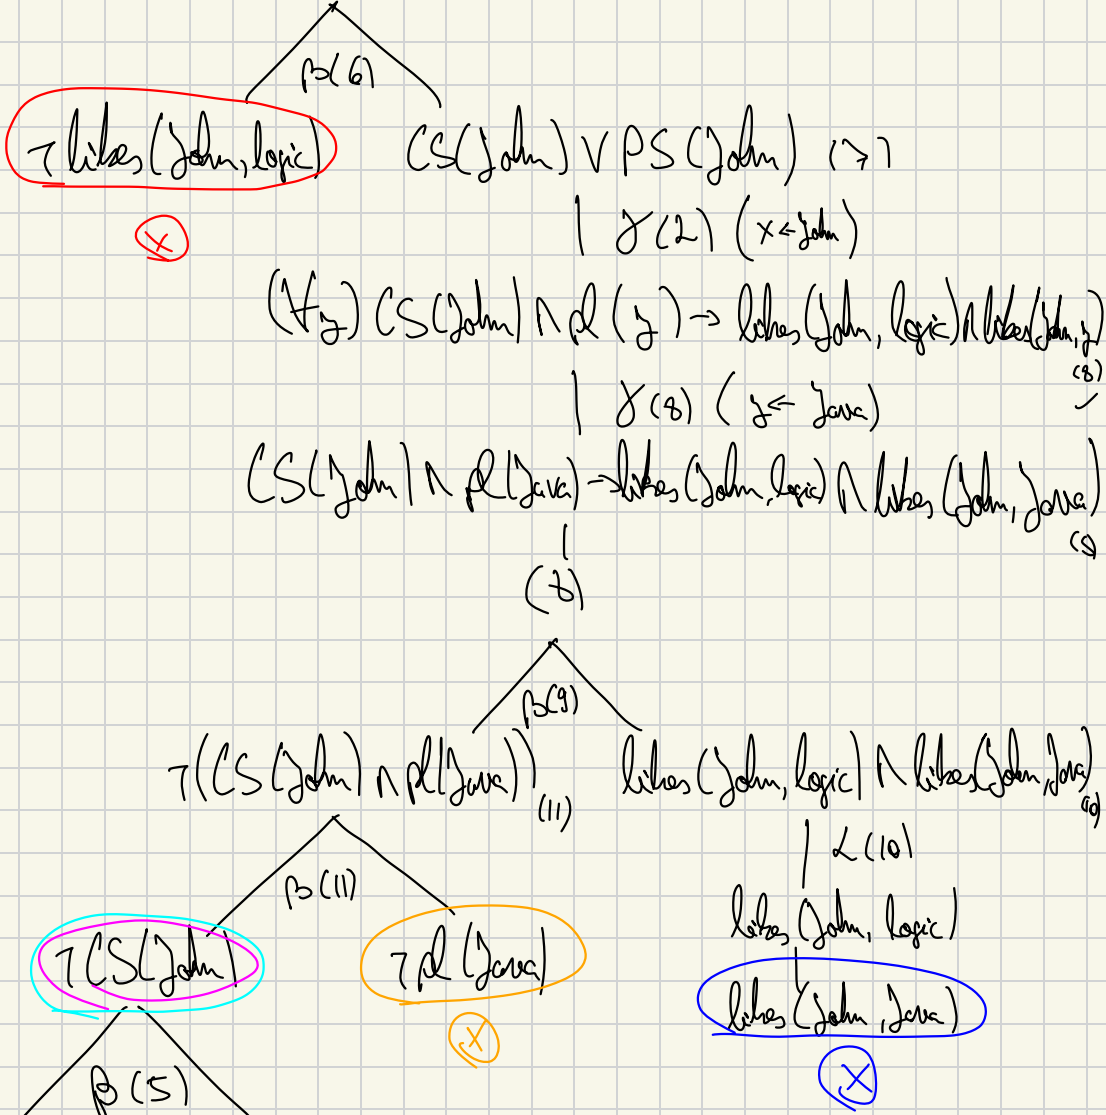 β(6)
¬likes(John,logic) CS(John)∨PS(John) (7)
X
γ(2) (x←John)
(∀y)CS(John)∧pl(y)→likes(John,logic)∧likes(John,y)
(8)
✓
γ(8) (y←Java)
CS(John)∧pl(Java)→likes(John,logic)∧likes(John,Java)
(9)
β(9)
¬(CS(John)∧pl(Java)) (11) likes(John,logic)∧likes(John,Java) (10)
α(10)
β(11)
likes(John,logic)
¬CS(John) ¬pl(Java) likes(John,Java)
X X
β(5)